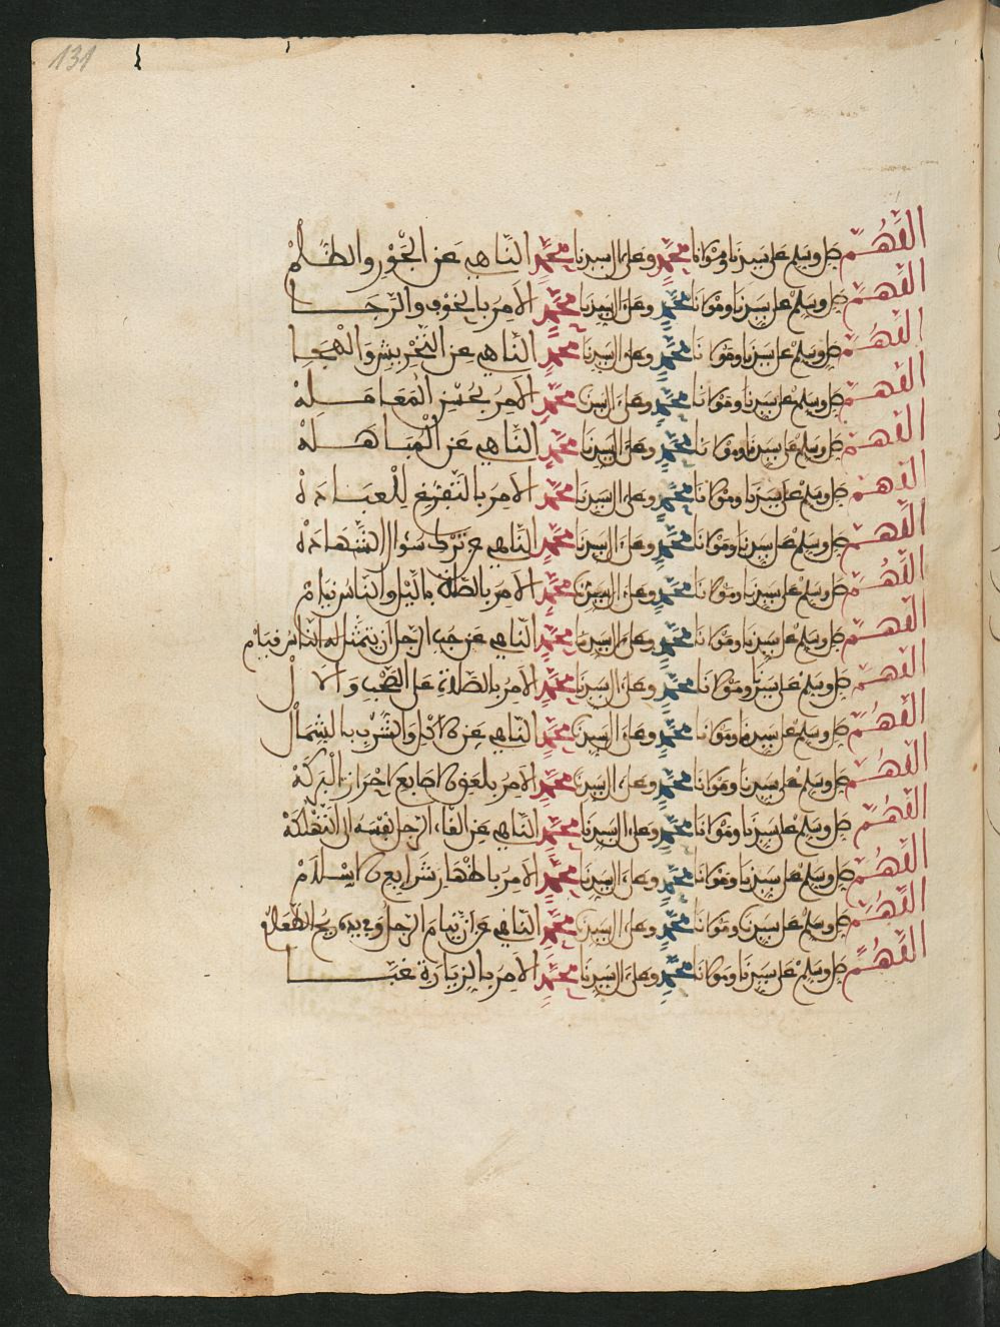 131
اللهم صل وسلم على سيدنا ومولانا محمد وعلى ال سيدنا محمد الناهي عن الجور والظلم
اللهم صل وسلم على سيدنا ومولانا محمد وعلى ال سيدنا محمد الامر بالخوف والرجا
اللهم صل وسلم على سيدنا ومولانا محمد وعلى ال سيدنا محمد الناهي عن والهجا
اللهم صل وسلم على سيدنا ومولانا محمد وعلى ال سيدنا محمد الامر بحسن المعاملة
اللهم صل وسلم على سيدنا ومولانا محمد وعلى ال سيدنا محمد الناهي عن المباهلة
اللهم صل وسلم على سيدنا ومولانا محمد وعلى ال سيدنا محمد الامر بالتفريغ للعبادة
اللهم صل وسلم على سيدنا ومولانا محمد وعلى ال سيدنا محمد الناهي عن ترك سؤال الشهادة
اللهم صل وسلم على سيدنا ومولانا محمد وعلى ال سيدنا محمد الامر بالصلاة باليل والناس نيام
اللهم صل وسلم على سيدنا ومولانا محمد وعلى ال سيدنا محمد الناهي عن حب الرجل ان يتمثل له الناس قيام
اللهم صل وسلم على سيدنا ومولانا محمد وعلى ال سيدنا محمد الامر بالصلاة على الصحب والال
اللهم صل وسلم على سيدنا ومولانا محمد وعلى ال سيدنا محمد الناهي عن الاكل والشرب بالشمال
اللهم صل وسلم على سيدنا ومولانا محمد وعلى ال سيدنا محمد الامر بلعق الاصابع احراز البركة
اللهم صل وسلم على سيدنا ومولانا محمد وعلى ال سيدنا محمد الناهي عن القاء الرجل نفسه الى التهلكة
اللهم صل وسلم على سيدنا ومولانا محمد وعلى ال سيدنا محمد الامر باظهار شرايع الاسلام
اللهم صل وسلم على سيدنا ومولانا محمد وعلى ال سيدنا محمد الناهي عن ان ينام الرجل وفي يده ريح الطعام
اللهم صل وسلم على سيدنا ومولانا محمد وعلى ال سيدنا محمد الامر بالزيارة غبا